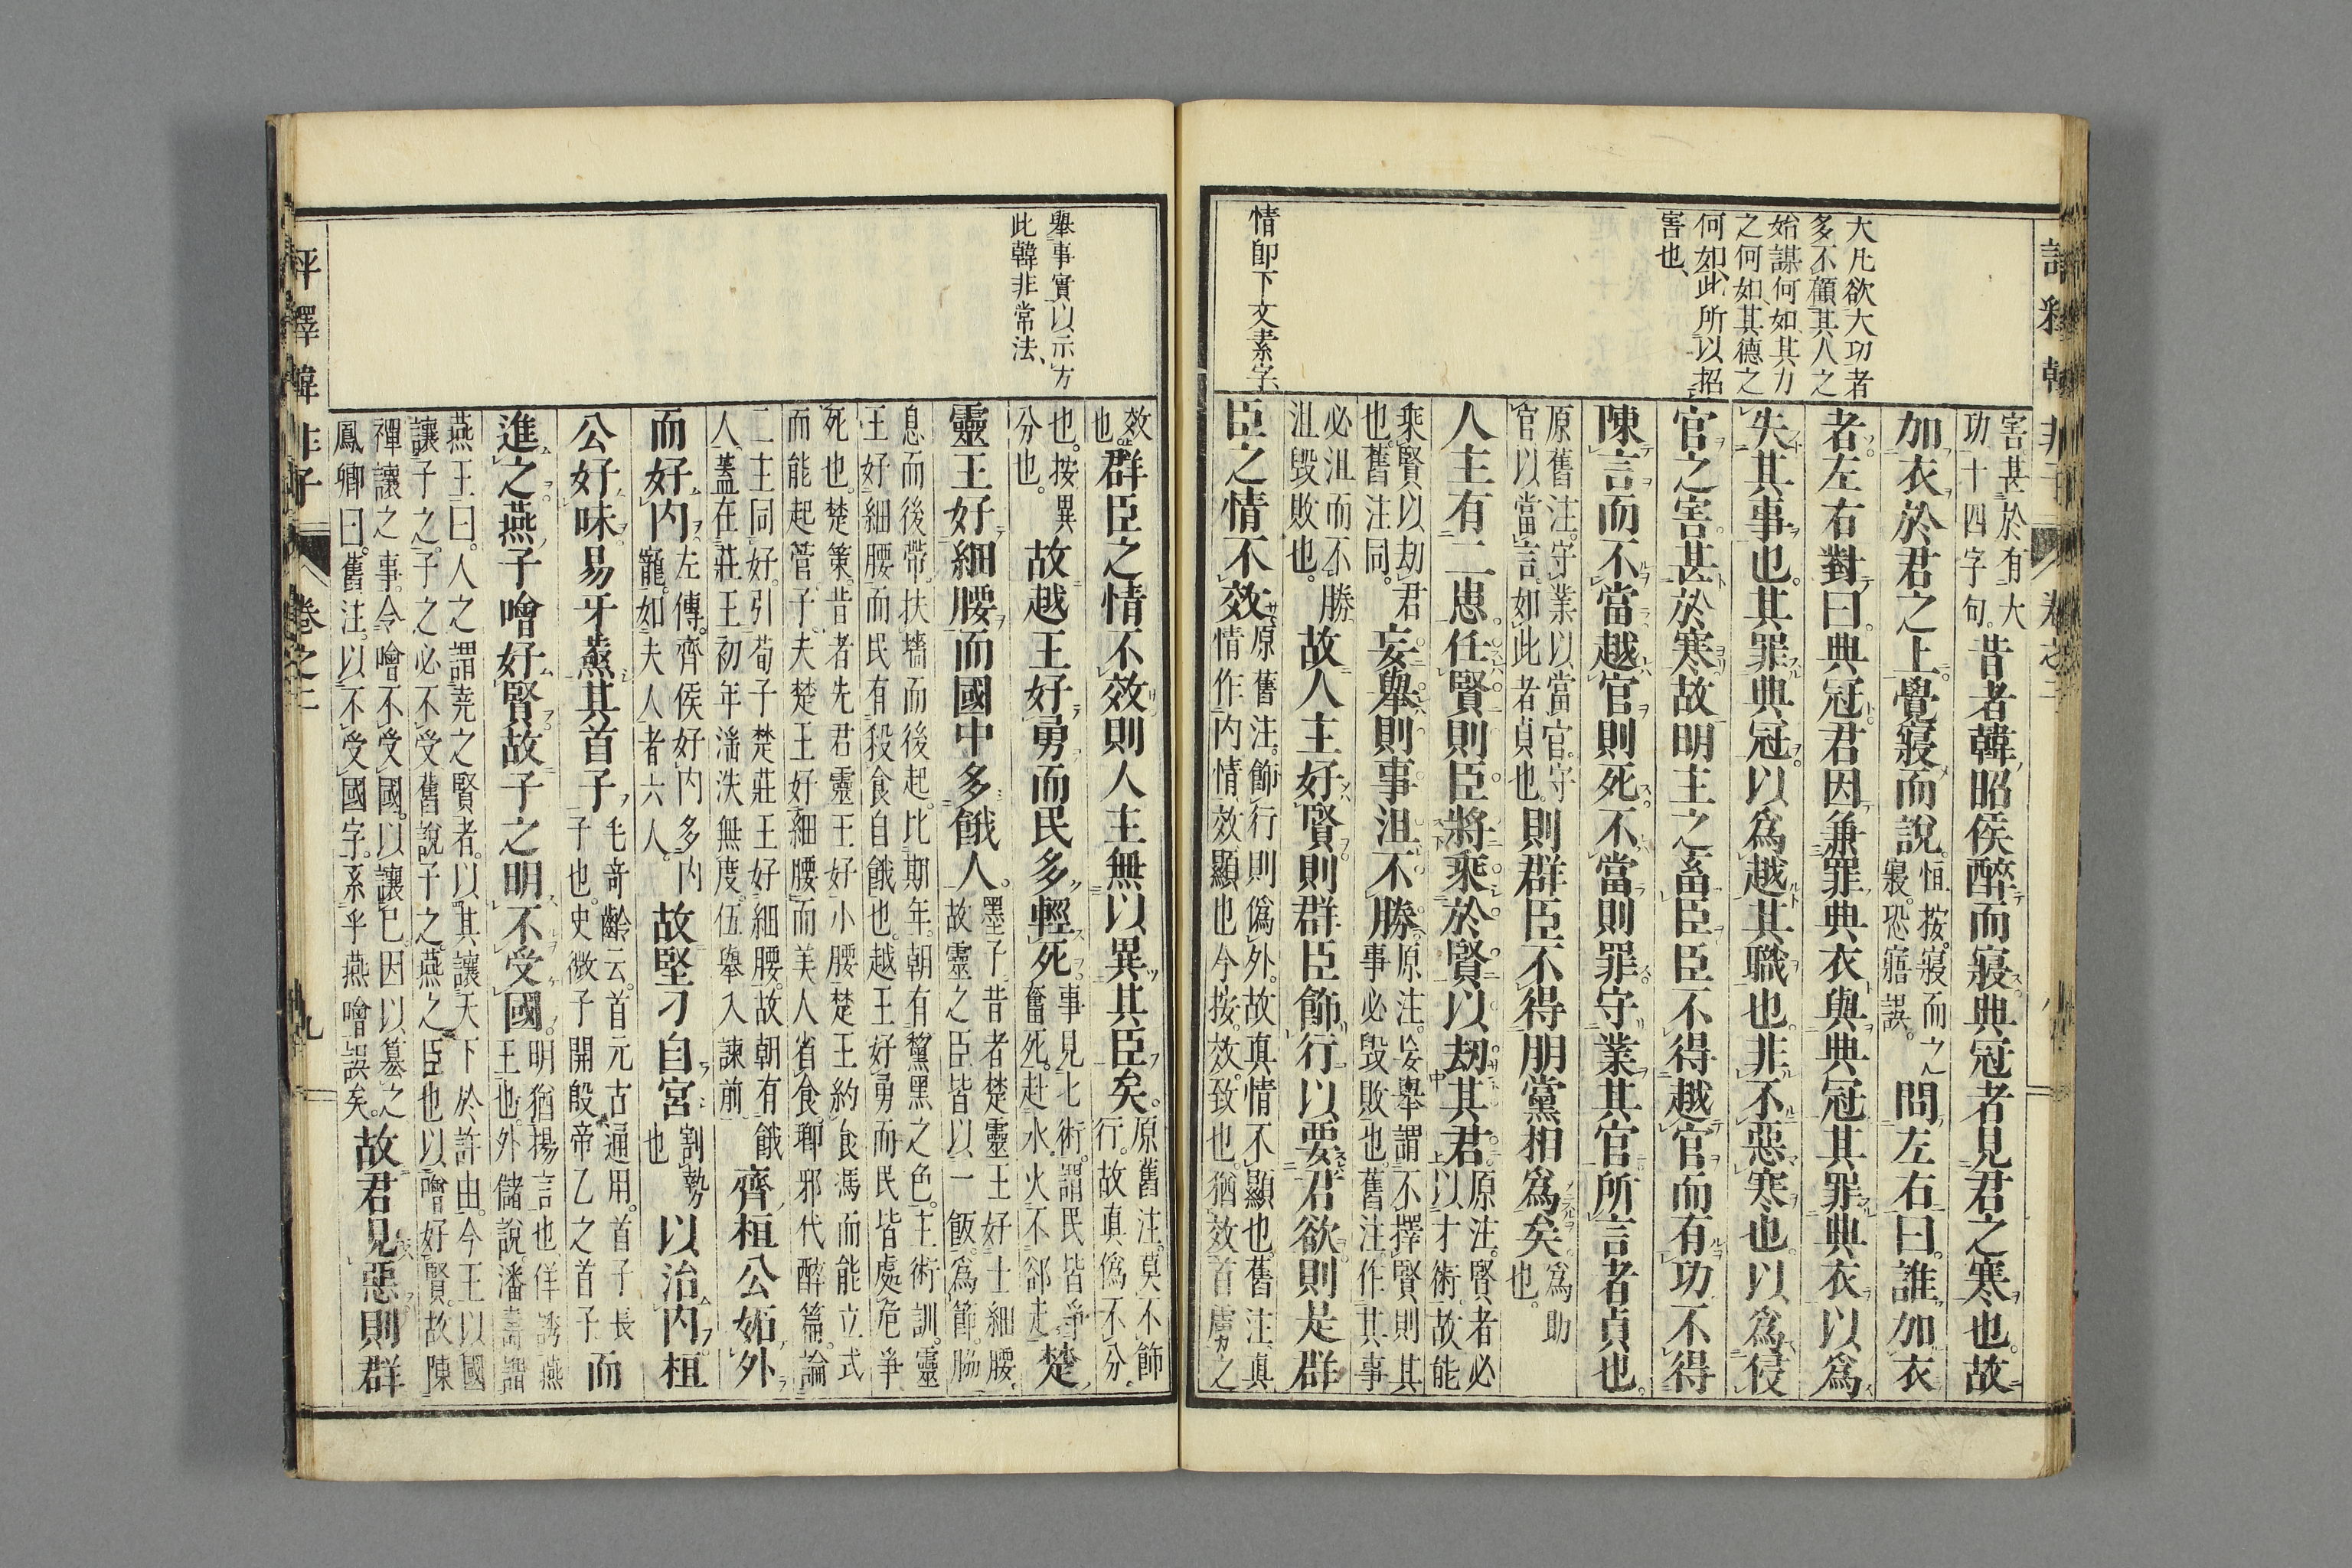 評釋韓非子
卷之二
大凡欲大功者
多不顧其人之
始謀何如其力
之何如其德之
何如此所以招
害也
情卽下文素字
害甚於有大
功十四字句。昔者韓昭侯醉而寢典冠者見君之寒也故
加衣於君之上覺寢而說。恒按。寢而之
寢。恐寤誤。問左右曰。誰加衣
者。左右對曰。典冠君因兼罪典衣與典冠其罪典衣以爲
失其事也。其罪典冠。以爲越其職也。非不惡寒也。以爲侵
官之害。甚於寒故明主之畜臣臣不得越官而有功不得
陳言而不當越官則死。不當則罪守業其官所言者貞也。
原舊注。守業以當官。守
官以當言。如此者貞也。則群臣不得朋黨相爲矣。爲助
也。
人主有二患。任賢則臣將乘於賢以劫其君原注。賢者必
以才術。故能
乘賢以劫君
也舊注同。妄舉則事沮不勝。原注。妄舉謂不擇賢則其
事必毀敗也。舊注作其事
必沮而不勝
沮毀敗也。故人主好賢則群臣飾行以要君欲則是群
臣之情不效原舊注。飾行則僞外。故真情不顯也。舊注真
情作内情效顯也今按。效致也。猶效首虜之
舉事實以示方
此韓非常法
效
也群臣之情不效則人主無以異其臣矣。原舊注。莫不飾
行。故真僞不分。
也。按異
分也。故越王好勇而民多輕死。事見七術。謂民皆爭
奮死。赴水火不郤走楚
靈王好細腰而國中多餓人。墨子。昔者楚靈王好士細腰。
故靈之臣皆以一飯爲節。脇
息而後帶。扶墻而後起。比期年。朝有黧黑之色。主術訓。靈
王好細腰而民有殺食自餓也。越王好勇而民皆處危爭
死也。楚策。昔者先君靈王好小腰楚王約食馮而能立式
而能起管子。夫楚王好細腰而美人省食聊邪代醉篇。論
二主同好。引荀子楚莊王好細腰。故朝有餓
人蓋在莊王初年淫泆無度。伍舉入諫前齊桓公妬外
而好内。左傳。齊侯好内多内
寵。如夫人者六人。故堅刁自宮割勢
也以治内桓
公好味易牙蒸其首子毛奇齡云。首元古通用。首子長
子也。史微子開殷帝乙之首子而
進之燕子噲好賢故子之明不受國。明猶揚言也佯誘燕
王也。外儲說潘壽謂
燕王曰。人之謂堯之賢者。以其讓天下於許由。今王以國
讓子之。子之必不受舊說子之。燕之臣也以噲好賢。故陳
禪讓之事。令噲不受國。以讓已。因以簒之
鳳卿曰。舊注。以不受國字。系乎燕噲誤矣。故君見惡則群
評釋韓非子
卷之二
九